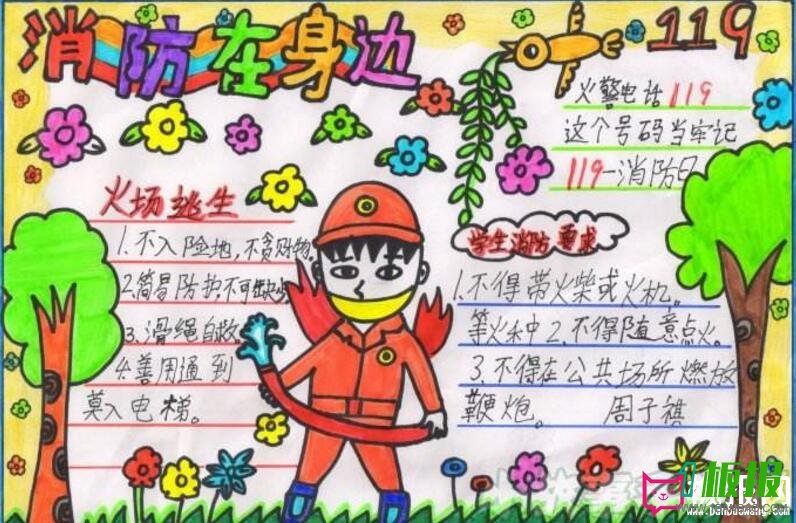 消防在身边
119
火警电话119
这个号码当牢记
119一消防日
火场逃生
1.不入险地,不贪财物。
2.简易防护,不可缺少
3.滑绳自救
4.善用通到
莫入电梯。
学生消防要求
1.不得带火柴或火机。
等火种2.不得随意点火。
3.不得在公共场所燃放
鞭炮。 周子祺
板报网
www.banbaowang.com